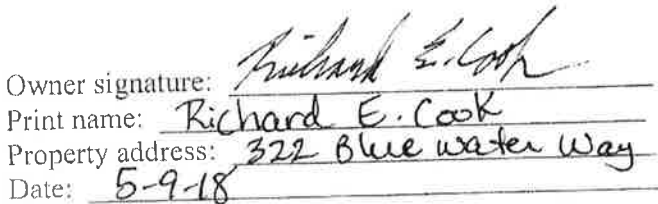 Owner signature: Richard E. Cook
Print name: Richard E. Cook
Property address: 322 Blue water Way
Date: 5-9-18